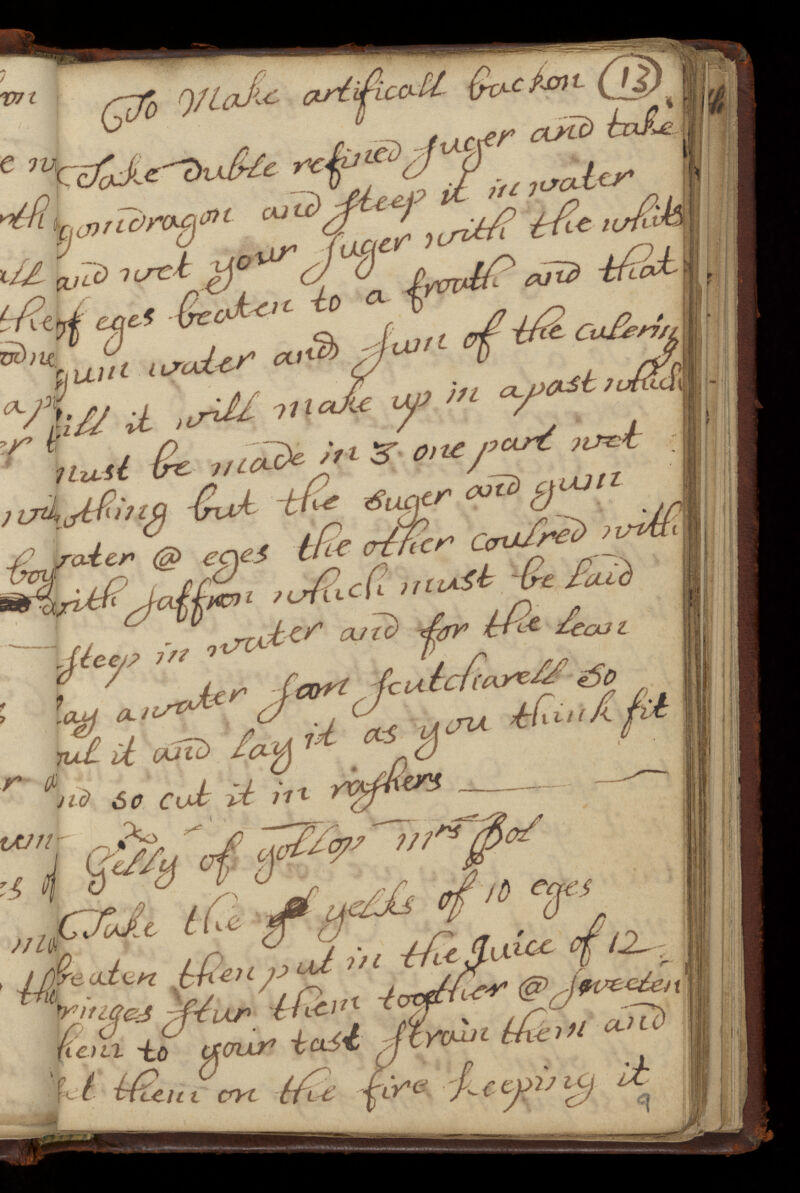 ron
e
rth
all
the
a p
er
wil
boy
r a
es of
ma
the
To Make artificall backon 13
Take duble refined suger and take
gomdragon and steep it in water
and wet your suger with the whits
of eges beaten to a frouth and that
gum water and sum of the culering
till it will make up in apast which
must be made in 3 one part wet
nothing but the suger and gum
water @ eges the other coulred with
with saffron which must be laid
steep in water and for the lean
lay awater soon scutcharell so
it and lay it as you think fit
and so cut it in rashers
Gelly of gollop mrs Bol
Take the yelks of 10 eges
beaten then put in the Juice of 12
ringes stur them together @ sweeten
them to your tast strain them and
set them on the fire keeping it
9